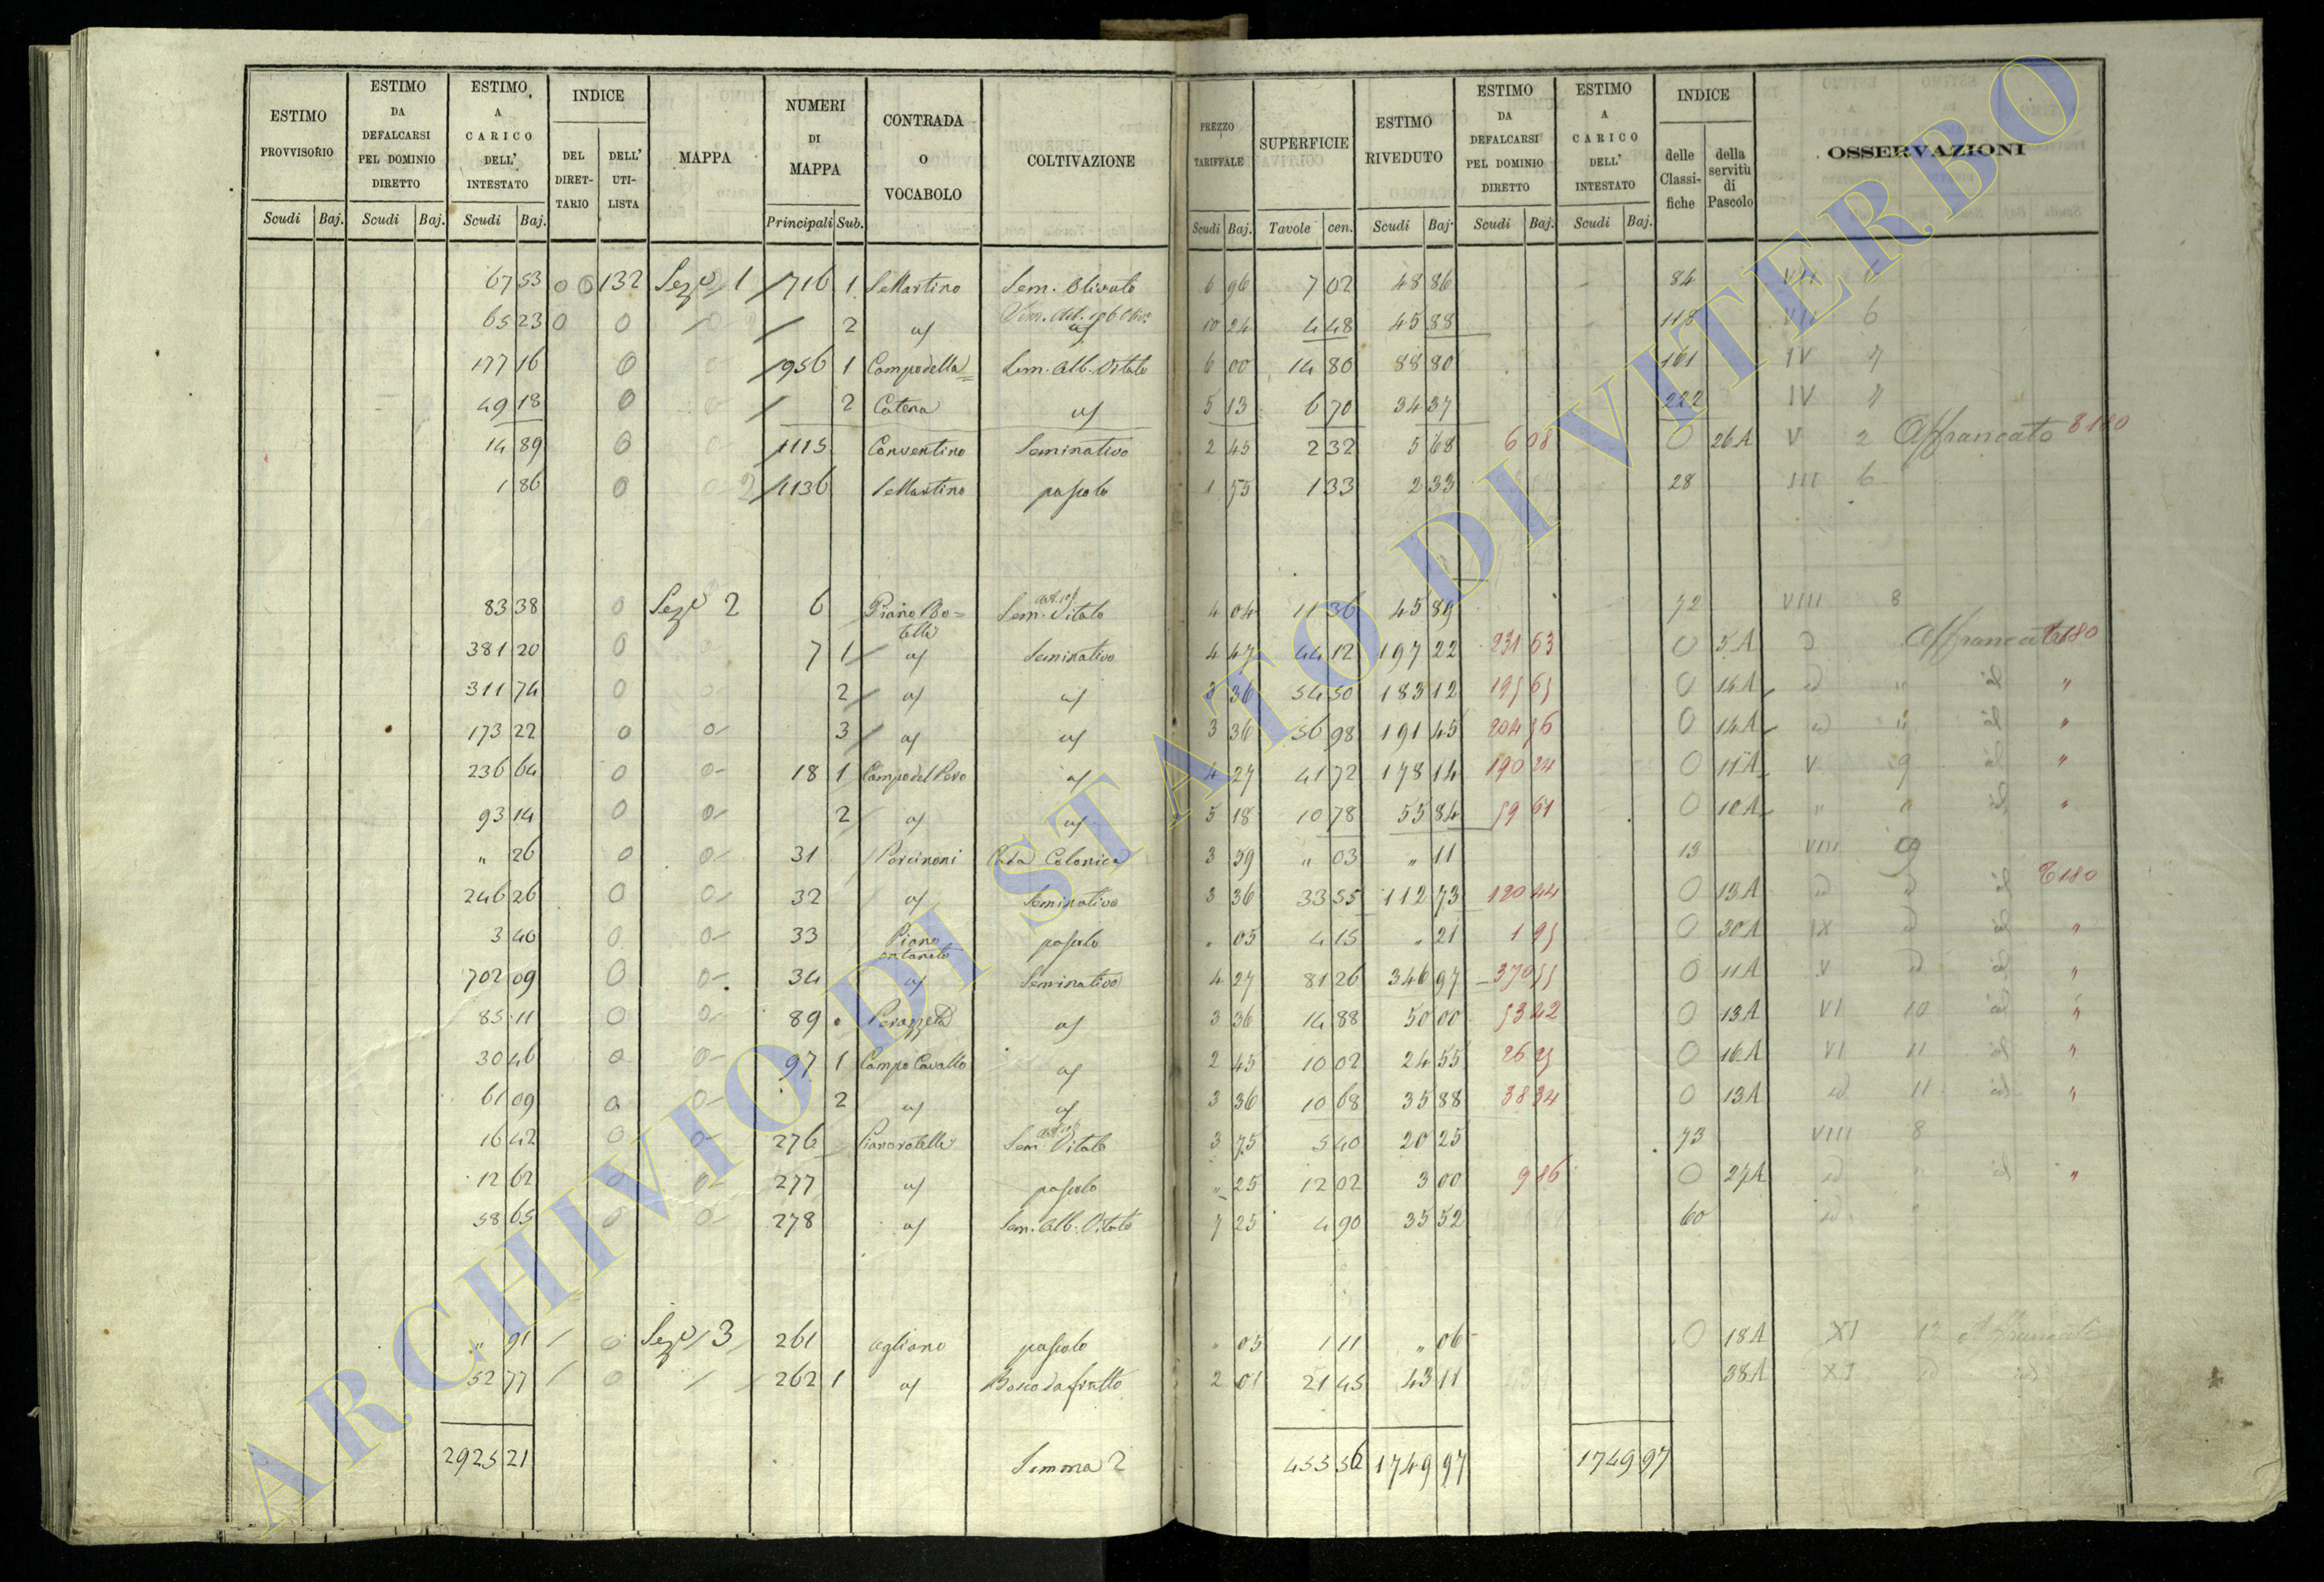 ESTIMO PROVVISORIO
ESTIMO DA DEFALCARSI PEL DOMINIO DIRETTO
ESTIMO A CARICO DELL' INTESTATO
INDICE
DEL DIRET-TARIO
DELL' UTI-LISTA
MAPPA
NUMERI DI MAPPA
CONTRADA O VOCABOLO
COLTIVAZIONE
PREZZO TARIFFALE
SUPERFICIE
ESTIMO RIVEDUTO
ESTIMO DA DEFALCARSI PEL DOMINIO DIRETTO
ESTIMO A CARICO DELL' INTESTATO
INDICE
delle Classi-fiche
della servitù di Pascolo
OSSERVAZIONI
Scudi Baj. Scudi Baj. Scudi Baj. Principali Sub. Scudi Baj. Tavole cen. Scudi Baj. Scudi Baj. Scudi Baj.
67 53 0 0 132 Sez.e 1 716 1 S. Martino Sem. Olivato 6 96 7 02 48 86 84 VII 6
65 23 0 0 2 10 24 4 48 45 88 118 VII 6
177 16 0 956 1 Campo della Sem. Alb. Vitato 6 00 14 80 88 80 161 IV
49 18 0 2 Catena 5 13 6 70 34 37 222 IV
14 89 0 1115 Conventino Seminativo 2 45 2 32 5 68 6 08 0 26A V 2 Affrancato 8180
1 86 0 2 1136 S. Martino pascolo 1 75 1 33 2 33 28 III 6
83 38 0 Sez.e 2 6 Piano Ro= Sem. Vitato 4 04 11 36 45 89 72 VIII 8
telle
381 20 0 7 1 Seminativo 4 47 44 12 197 22 231 63 0 5A Affrancato 8180
311 74 0 2 3 36 54 50 183 12 195 65 0 14A id " id "
173 22 0 0 3 3 36 56 98 191 45 204 56 0 14A id " id "
236 64 0 0 18 1 Campo del Pero 4 27 41 72 178 14 190 24 0 11A V 9 id "
93 14 0 0 2 5 18 10 78 55 84 59 61 0 10A " " id "
" 26 0 0 31 Porcinoni Casa Colonica 3 59 " 03 " 11 13 VIII 9
246 26 0 0 32 Seminativo 3 36 33 55 112 73 120 44 0 13A id id id 8180
3 40 0 0 33 Piano pascolo " 05 4 15 " 21 1 95 0 30A IX id id "
702 09 0 0 34 Seminativo 4 27 81 26 346 97 370 55 0 11A V id id "
85 11 0 0 89 Perazzeta 3 36 14 88 50 00 53 42 0 13A VI 10 id "
30 46 0 0 97 1 Campo Cavallo 2 45 10 02 24 55 26 25 0 16A VI 11 id "
61 09 0 0 2 3 36 10 68 35 88 38 34 0 13A id 11 id "
16 42 0 0 276 Pianorotelle Sem. Vitato 3 75 5 40 20 25 73 VIII 8
12 62 0 0 277 pascolo " 25 12 02 3 00 9 86 0 27A id " id "
58 65 0 0 278 Sem. Alb. Vitato 7 25 4 90 35 52 60 id "
" 91 0 Sez.e 3 261 Agliano pascolo " 05 1 11 " 06 0 18A XI 12 Affrancato
52 77 0 262 1 Bosco da frutto 2 01 21 45 43 11 38A XI id id
2925 21 Somma 2 455 56 1749 97 1749 97
ARCHIVIO DI STATO DI VITERBO